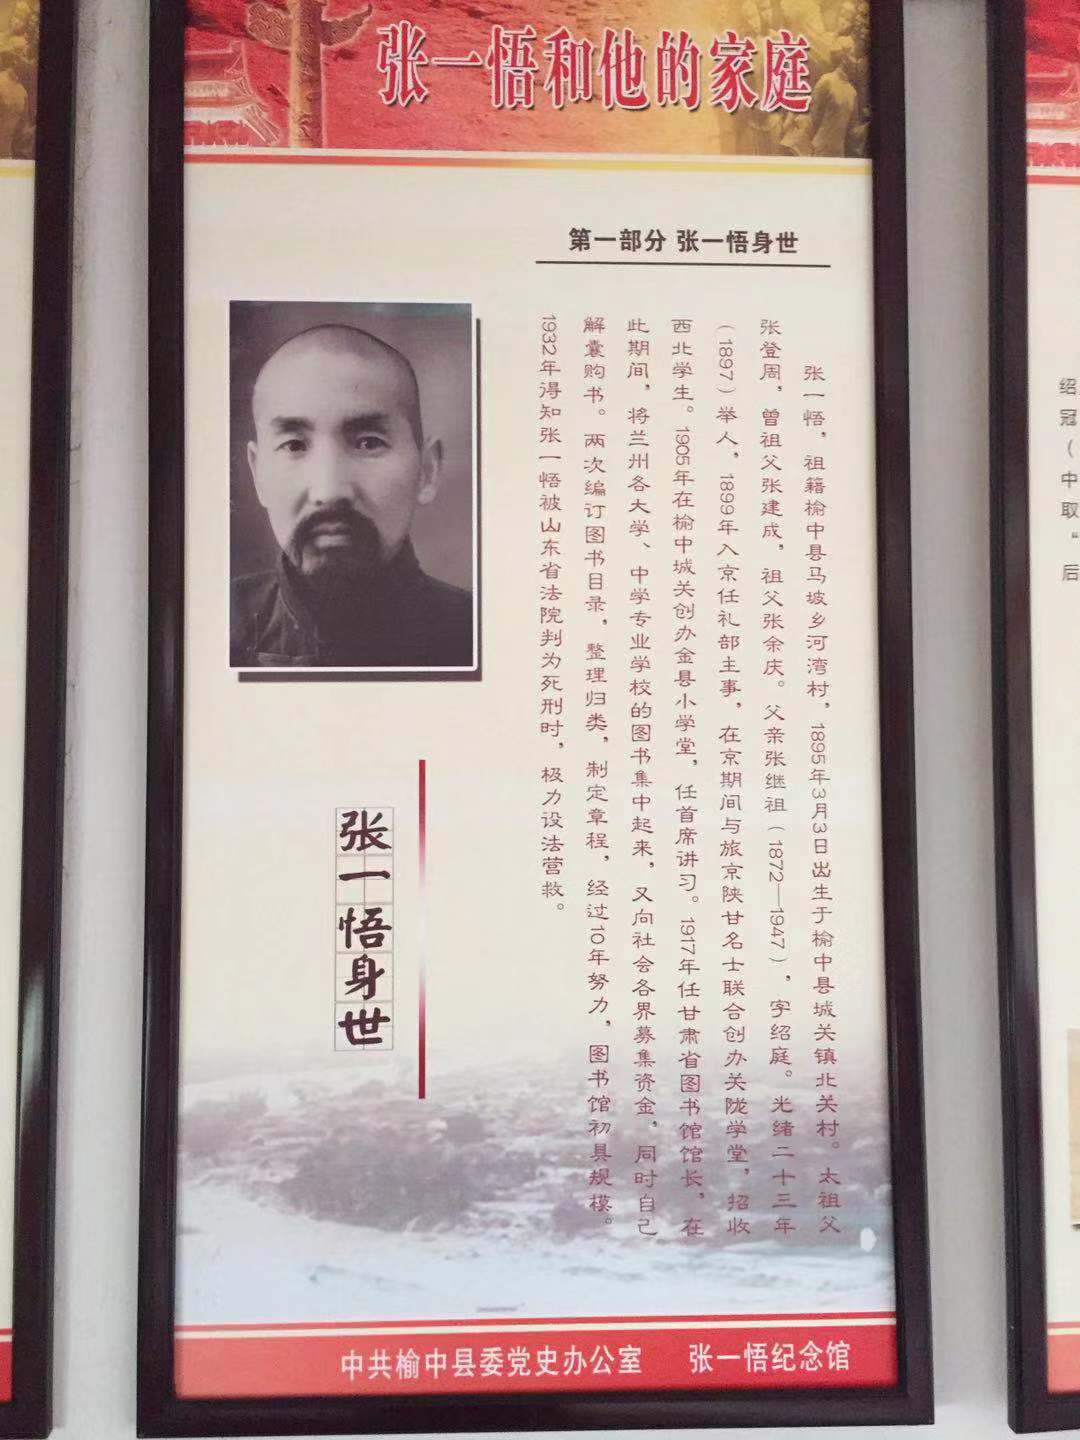 张一悟和他的家庭
第一部分 张一悟身世
张一悟，祖籍榆中县马坡乡河湾村，1895年3月3日出生于榆中县城关镇北关村。太祖父
张登周，曾祖父张建成，祖父张余庆。父亲张继祖（1872—1947），字绍庭。光绪二十三年
（1897）举人，1899年入京任礼部主事，在京期间与旅京陕甘名士联合创办关陇学堂，招收
西北学生。1905年在榆中城关创办金县小学堂，任首席讲习。1917年任甘肃省图书馆馆长，在
此期间，将兰州各大学、中学专业学校的图书集中起来，又向社会各界募集资金，同时自己
解囊购书。两次编订图书目录，整理归类，制定章程，经过10年努力，图书馆初具规模。
1932年得知张一悟被山东省法院判为死刑时，极力设法营救。
张一悟身世
中共榆中县委党史办公室 张一悟纪念馆
绍
冠
（
中
取
“
后